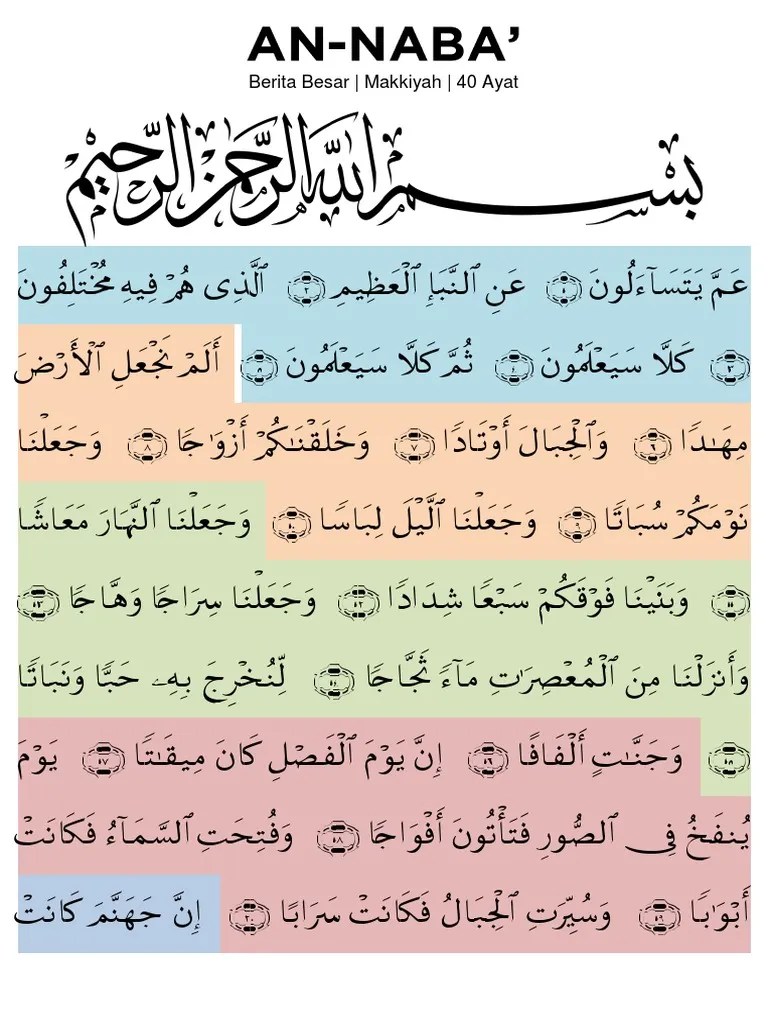 AN-NABA’
Berita Besar | Makkiyah | 40 Ayat
بِسْمِ اللَّهِ الرَّحْمَٰنِ الرَّحِيمِ
عَمَّ يَتَسَآءَلُونَ ١ عَنِ ٱلنَّبَإِ ٱلْعَظِيمِ ٢ ٱلَّذِى هُمْ فِيهِ مُخْتَلِفُونَ
٣ كَلَّا سَيَعْلَمُونَ ٤ ثُمَّ كَلَّا سَيَعْلَمُونَ ٥ أَلَمْ نَجْعَلِ ٱلْأَرْضَ
مِهَـٰدًا ٦ وَٱلْجِبَالَ أَوْتَادًا ٧ وَخَلَقْنَـٰكُمْ أَزْوَٰجًا ٨ وَجَعَلْنَا
نَوْمَكُمْ سُبَاتًا ٩ وَجَعَلْنَا ٱلَّيْلَ لِبَاسًا ١٠ وَجَعَلْنَا ٱلنَّهَارَ مَعَاشًا
١١ وَبَنَيْنَا فَوْقَكُمْ سَبْعًا شِدَادًا ١٢ وَجَعَلْنَا سِرَاجًا وَهَّاجًا ١٣
وَأَنزَلْنَا مِنَ ٱلْمُعْصِرَٰتِ مَآءً ثَجَّاجًا ١٤ لِّنُخْرِجَ بِهِۦ حَبًّا وَنَبَاتًا
١٥ وَجَنَّـٰتٍ أَلْفَافًا ١٦ إِنَّ يَوْمَ ٱلْفَصْلِ كَانَ مِيقَـٰتًا ١٧ يَوْمَ
يُنفَخُ فِى ٱلصُّورِ فَتَأْتُونَ أَفْوَاجًا ١٨ وَفُتِحَتِ ٱلسَّمَآءُ فَكَانَتْ
أَبْوَٰبًا ١٩ وَسُيِّرَتِ ٱلْجِبَالُ فَكَانَتْ سَرَابًا ٢٠ إِنَّ جَهَنَّمَ كَانَتْ